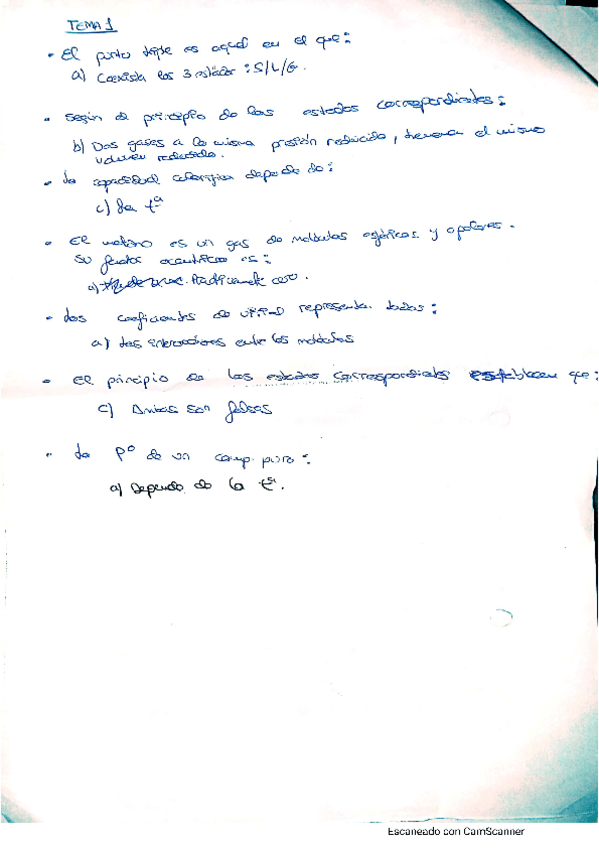 TEMA 1
• El punto triple es aquel en el que:
a) Coexista los 3 estados: S/L/G.
• Según el principio de los estados correspondientes:
b) Dos gases a la misma presión reducida, tienen el mismo
volumen reducido.
• La capacidad calorífica depende de:
c) La tª
• El metano es un gas de moléculas esféricas y apolares.
Su factor acéntrico es:
a) Prácticamente cero.
• Los coeficientes de representan todos:
a) Las interacciones entre las moléculas
• El principio de los estados correspondientes establecen que:
c) Ambas son falsas
• La Pº de un comp. puro:
a) Depende de la tª.
Escaneado con CamScanner